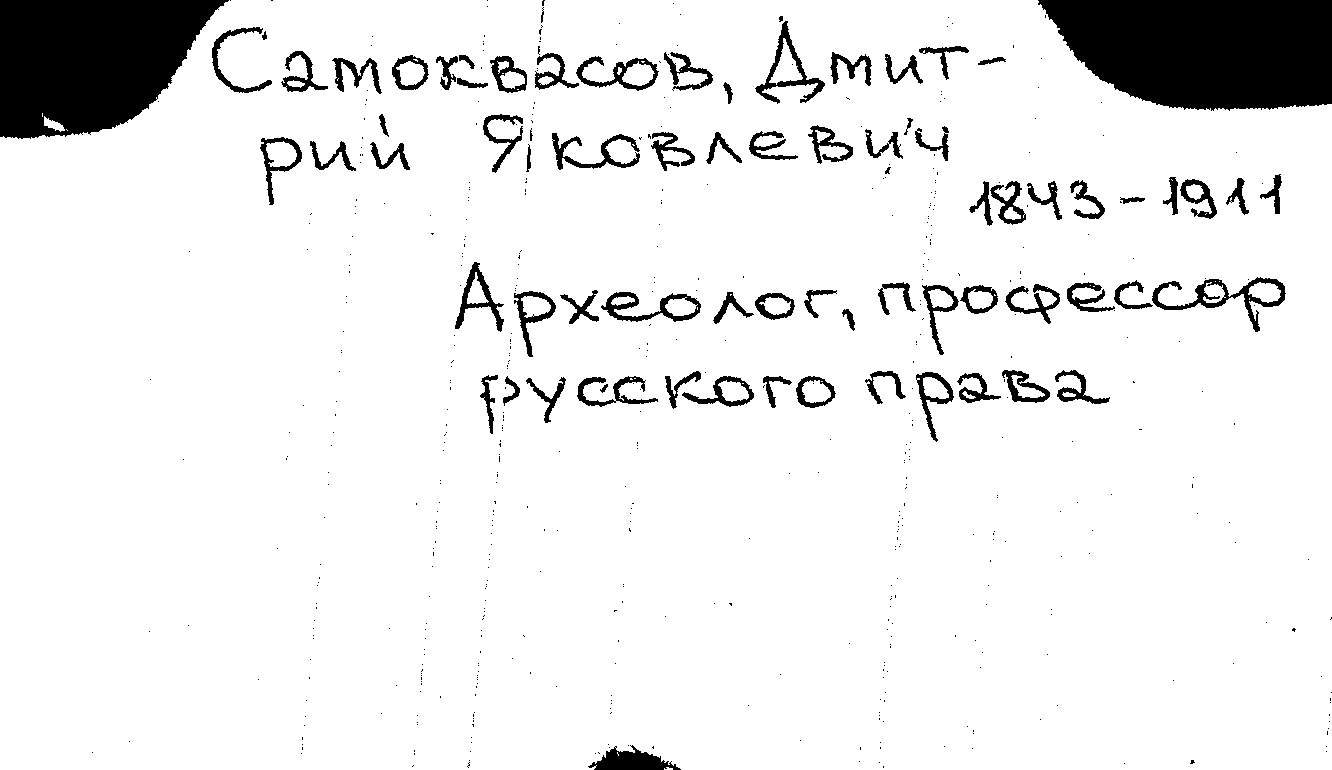 Самоквасов, Дмит-
рий Яковлевич
1843-1911
Археолог, профессор
русского права